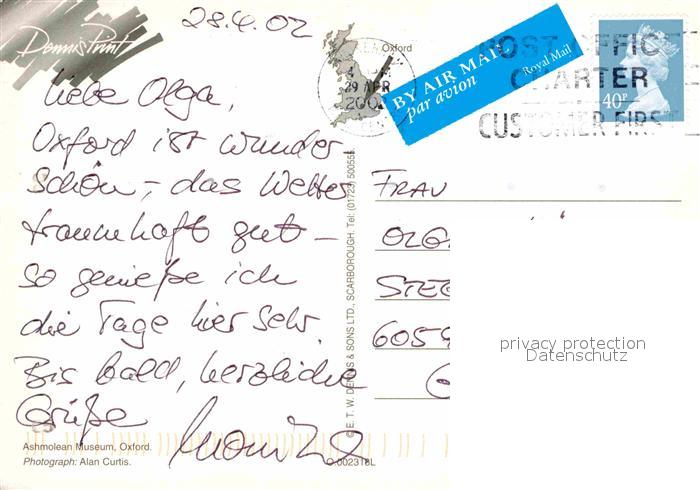 Dennis Print
28.4.02
Liebe Olga,
Oxford ist wunder
schön –, das Wetter
traumhaft gut –
so genieße ich
die Tage hier sehr.
Bis bald, herzliche
Grüße
Ashmolean Museum, Oxford.
Photograph: Alan Curtis.
O.002318L
E. T. W. DENNIS & SONS LTD., SCARBOROUGH. Tel: (01723) 500555
Oxford
29 APR
2002
BY AIR MAIL
par avion
Royal Mail
POST OFFICE
CHARTER
CUSTOMER FIRST
40P
FRAU
OLGA
6059
privacy protection
Datenschutz